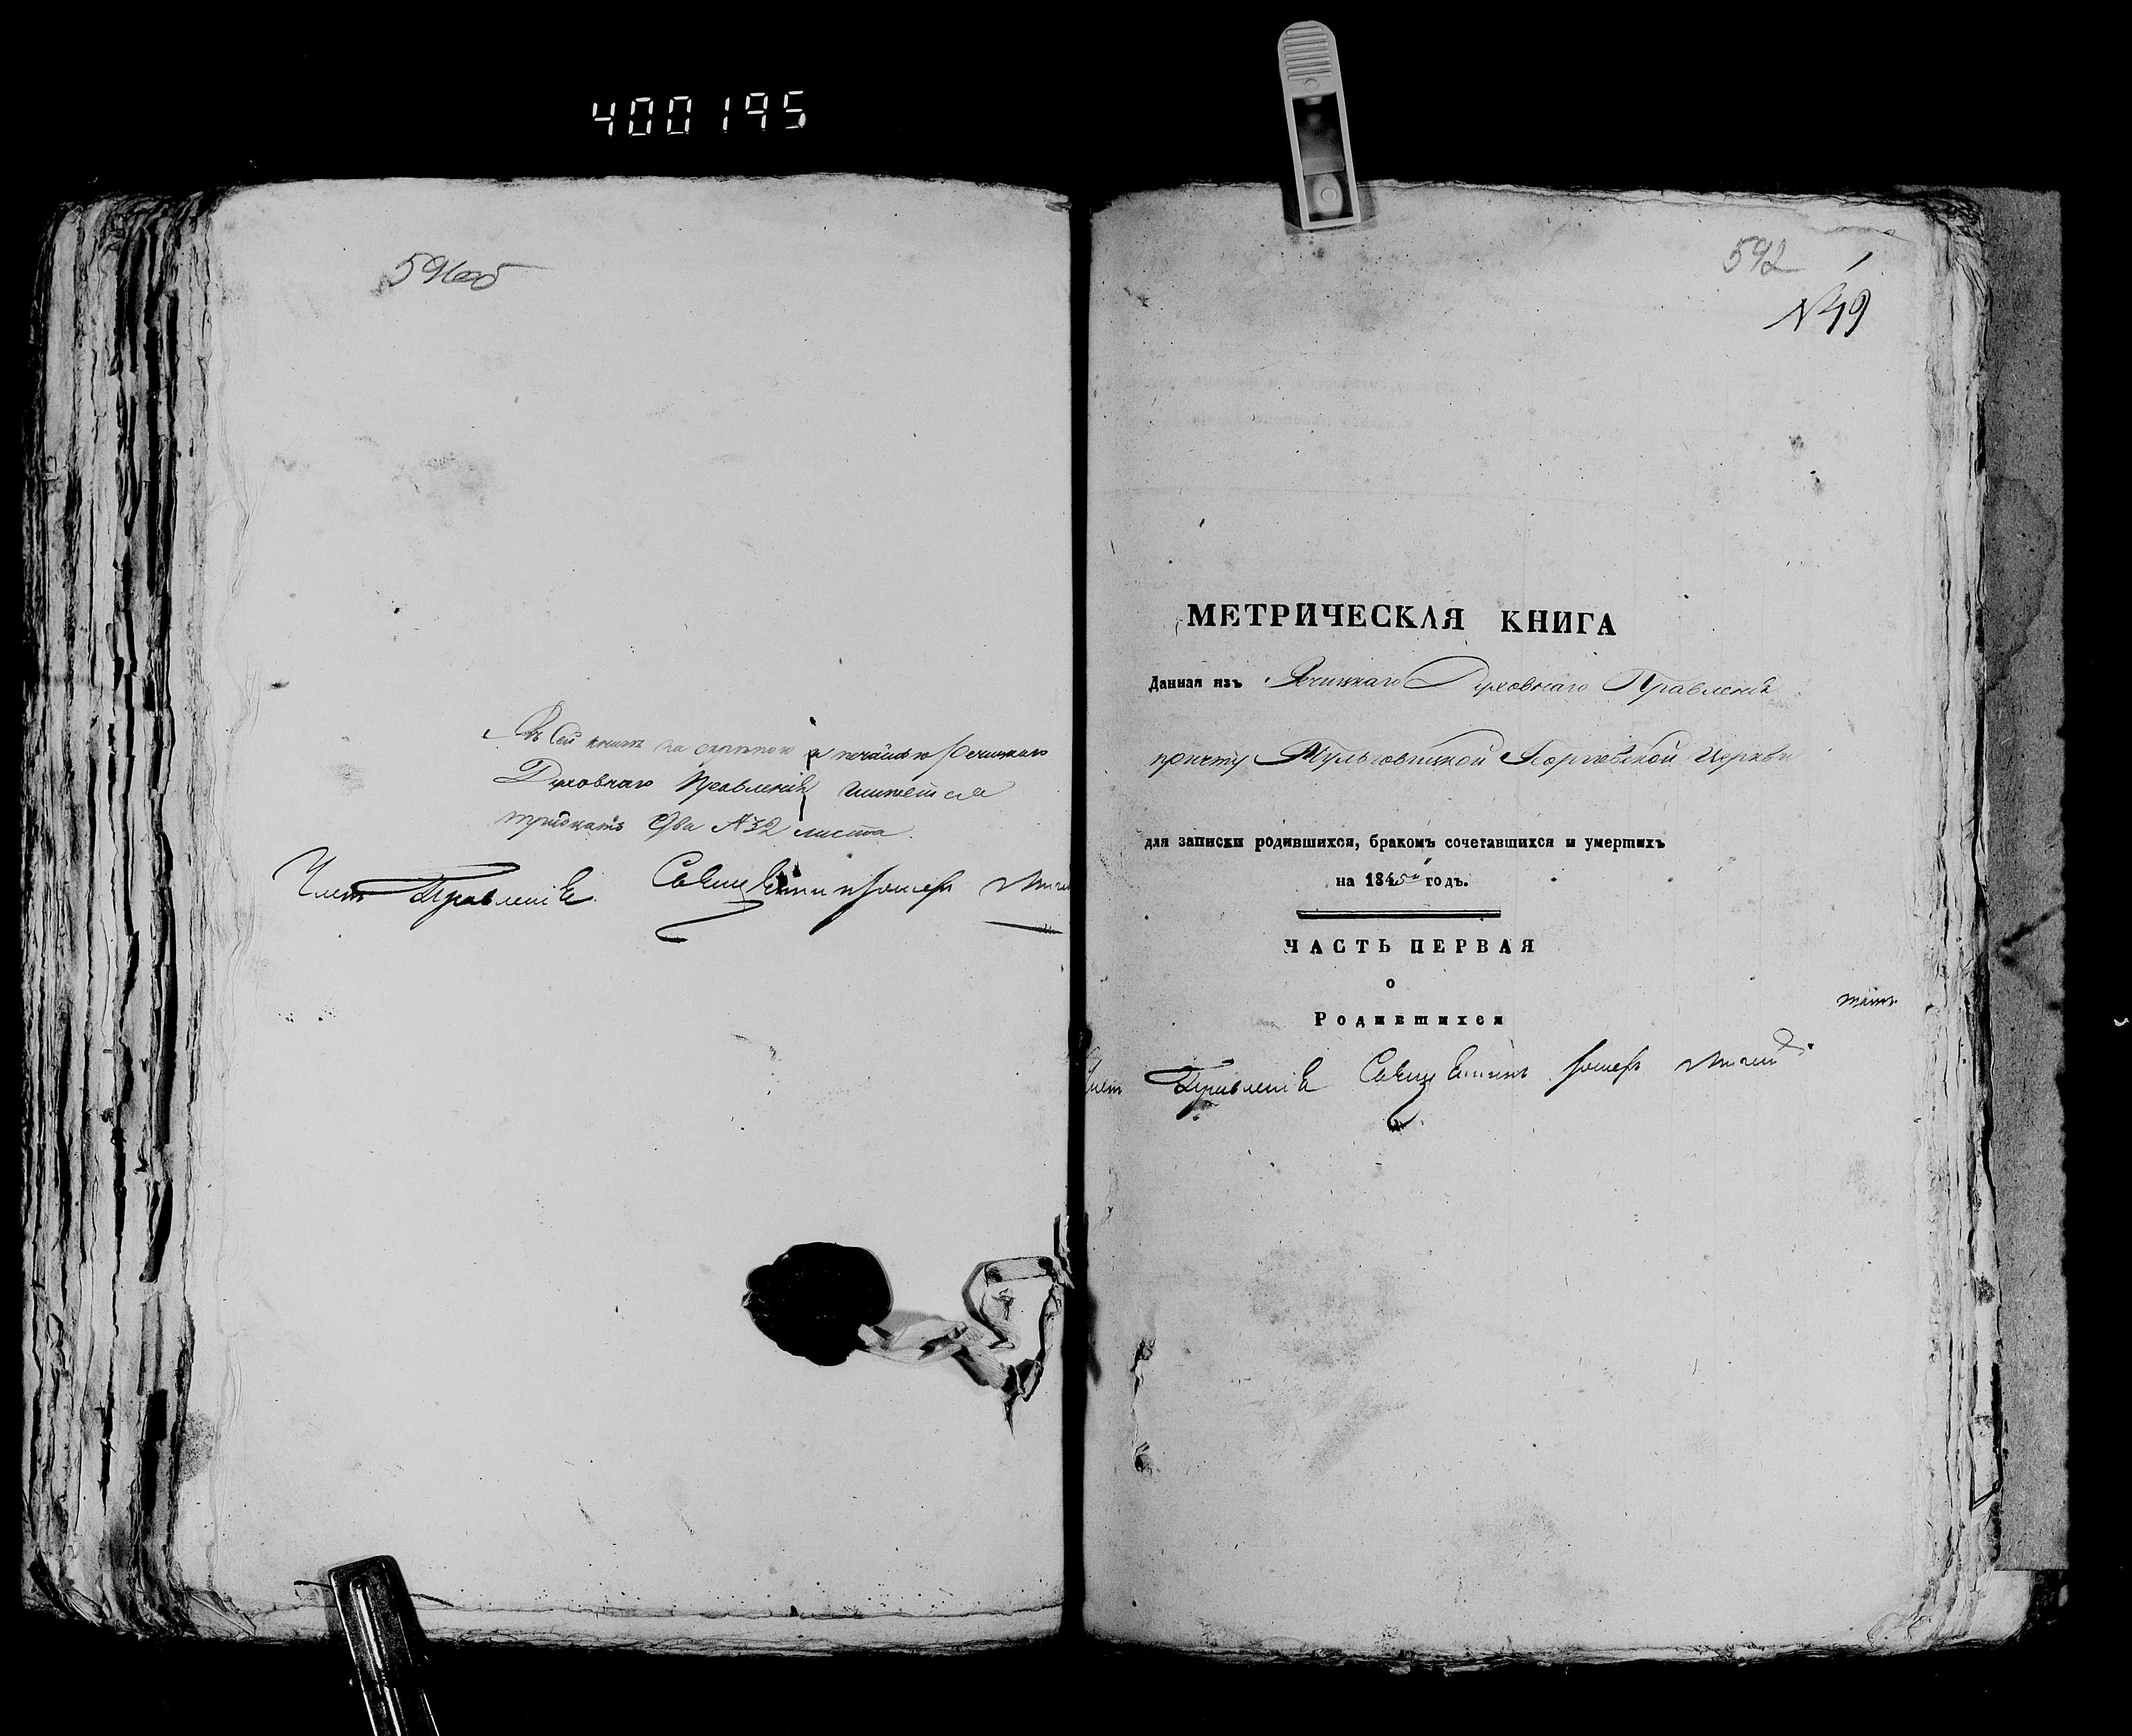 400195
591об
Въ сей книгѣ за скрѣпою и печатью Речицкаго
Духовнаго Правленія числится
тридцать два №32 листа.
Членъ Правленія Священникъ
592
1
№49
МЕТРИЧЕСКАЯ КНИГА
Данная изъ Речицкаго Духовнаго Правленія
причту Георгіевской Церкви
для записки родившихся, бракомъ сочетавшихся и умертихъ
на 1845й годъ.
ЧАСТЬ ПЕРВАЯ
о
Родившихся
Членъ Правленія Священникъ